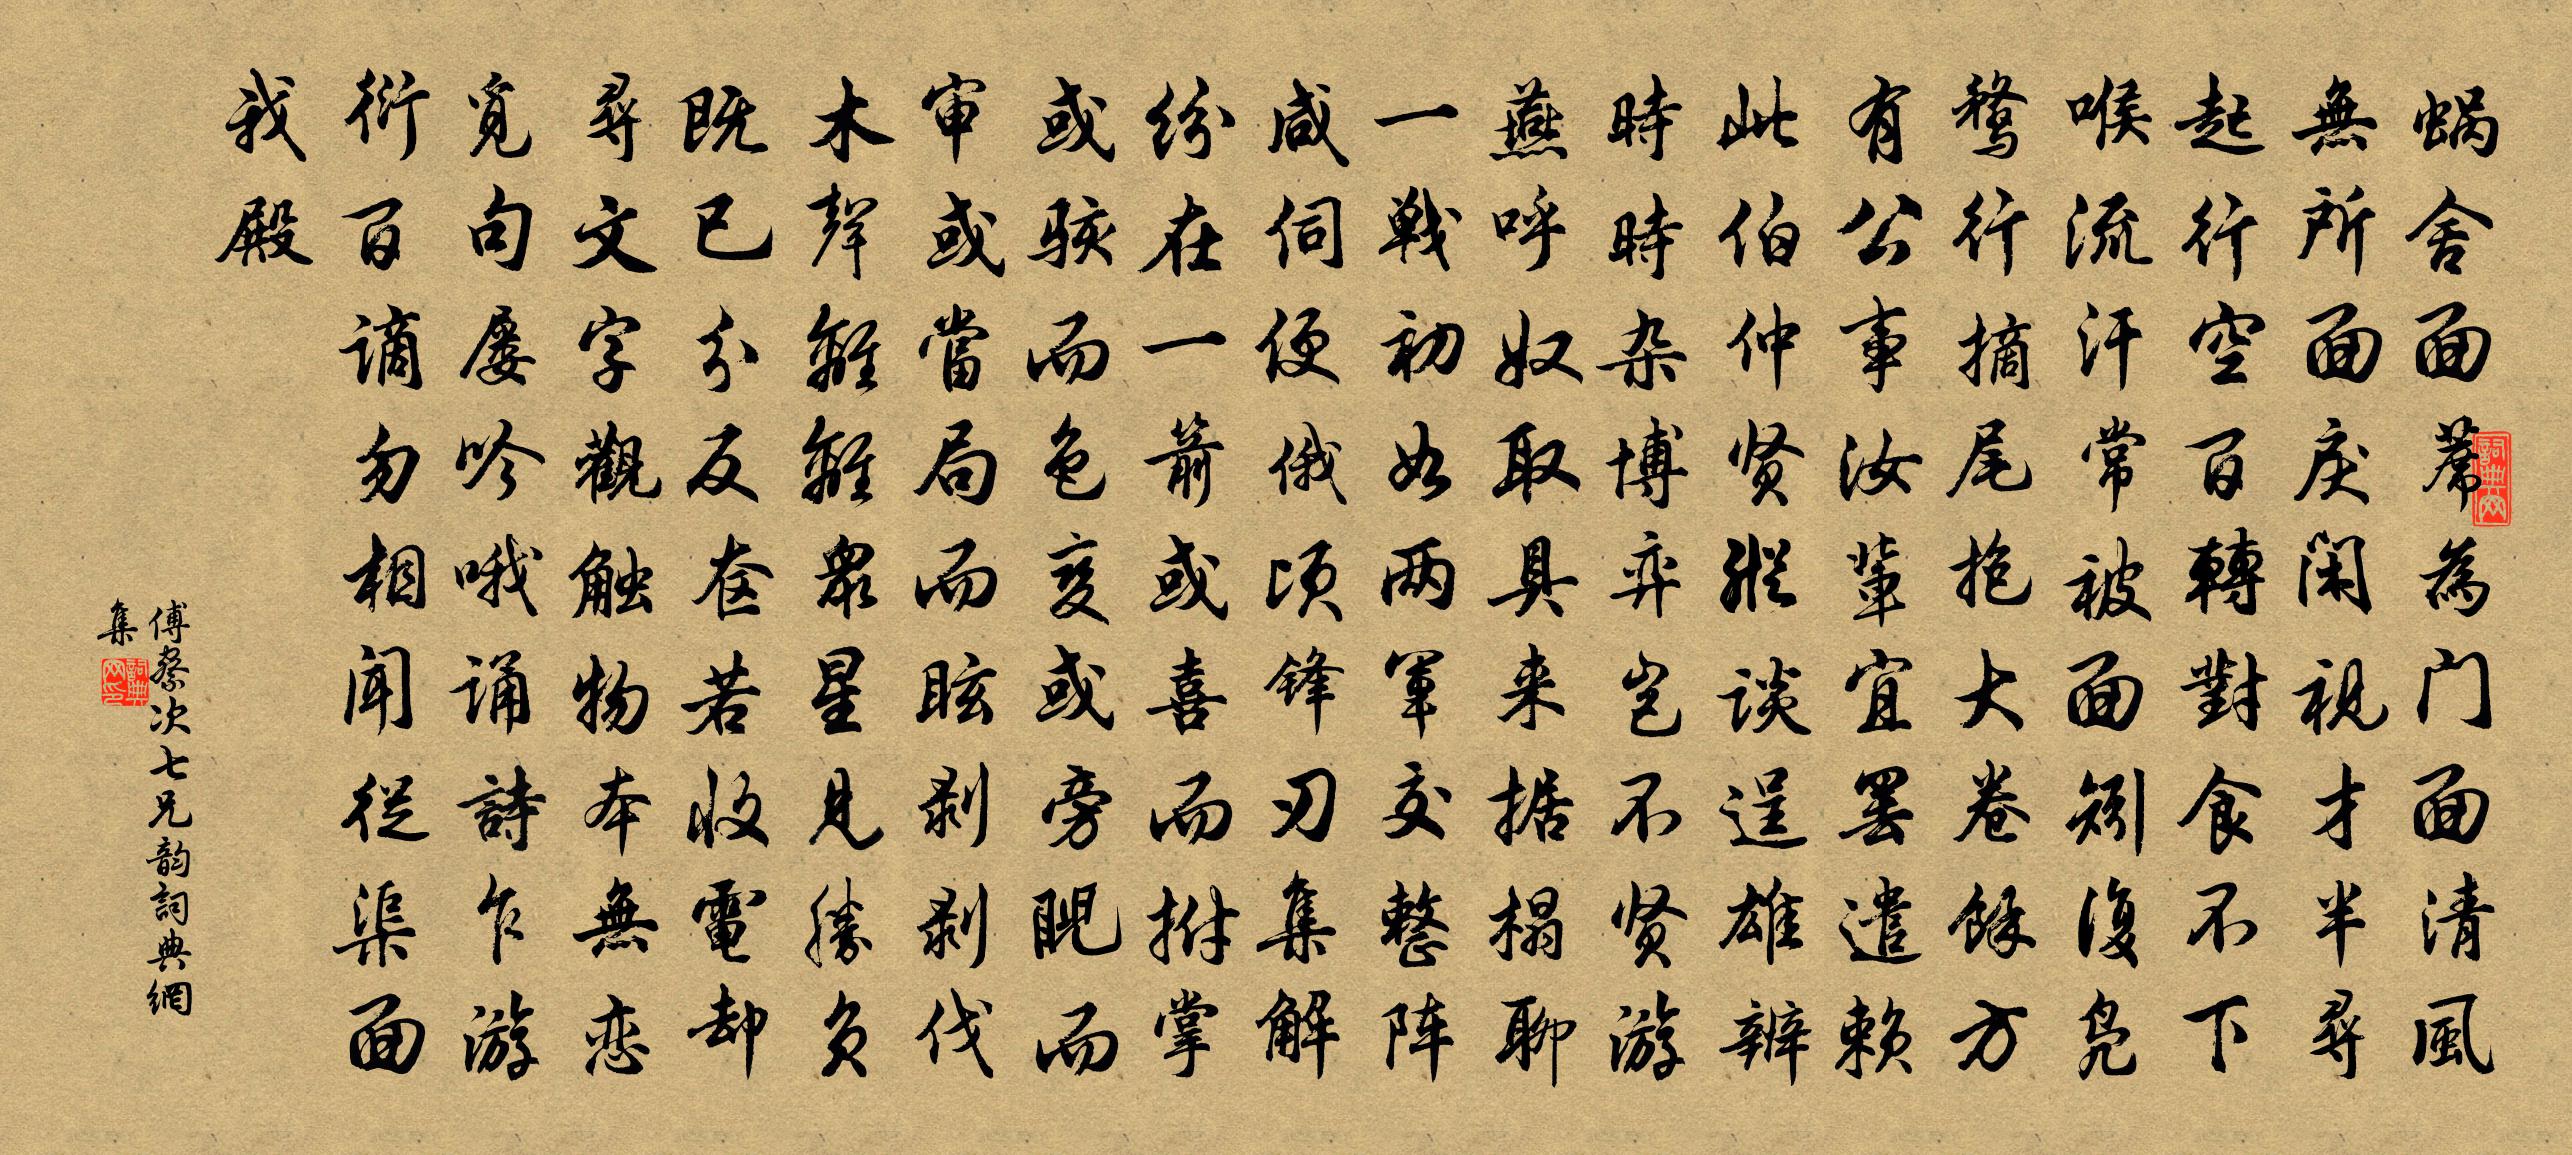 蜗舍面蓆為门面清風
無所面戾闲視才半尋
起行空百轉對食不下
喉流汗常被面矧復凫
鶩行摘尾抱大卷餘方
有公事汝輩宜罢遣赖
此伯仲贤縱谈逞雄辨
時時杂博弈岂不贤游
燕呼奴取具来据榻聊
一戰初如两軍交整阵
咸伺便俄顷锋刃集解
纷在一箭或喜而拊掌
或骇而色变或旁睨而
审或當局而眩剥剥伐
木聲離離眾星見勝负
既已分反奁若收電却
尋文字觀触物本無恋
覓句屡吟哦诵詩乍游
衍百谪勿相聞從渠面
我殿
傅察次七兄韵詞典網
集
詞典网
詞典网印